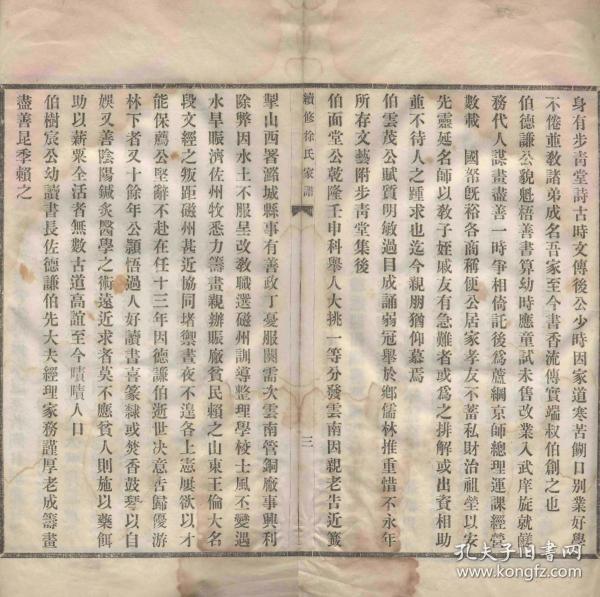 身有步青堂詩古時文傳後公少時因家道寒苦餬口別業好學
不倦並教諸弟成名吾家至今書香流傳實端叔伯創之也
伯德謙公貌魁梧善書算幼時應童試未售改業入武庠旋就鹺
務代人謀畫盡善一時爭相倚託後為蘆綱京師總理運課經營
數載 國帑既裕各商稱便公居家孝友不蓄私財治祖塋以安
先靈延名師以教子姪戚友有急難者或為之排解或出資相助
並不待人之踵求也迄今親朋猶仰慕焉
伯雲茂公賦質明敏過目成誦弱冠舉於鄉儒林推重惜不永年
所存文藝附步青堂集後
伯面堂公乾隆壬申科舉人大挑一等分發雲南因親老告近籤
續修徐氏家譜
三
掣山西署潞城縣事有善政丁憂服闋需次雲南管銅廠事興利
除弊因水土不服呈改教職選磁州訓導整理學校士風丕變遇
水旱賑濟佐州牧悉力籌畫親辦賑廠貧民賴之山東王倫大名
段文經之叛距磁州甚近協同堵禦晝夜不遑各上憲屢欲以才
能保薦公堅辭不赴在任十三年因德謙伯逝世決意告歸優游
林下者又十餘年公穎悟過人好讀書喜篆隸或焚香鼓琴以自
娛又善陰陽鍼灸醫學之術遠近求者莫不應貧人則施以藥餌
助以薪粟全活者無數古道高誼至今嘖嘖人口
伯樹宸公幼讀書長佐德謙伯先大夫經理家務謹厚老成籌畫
盡善昆季賴之
孔夫子旧书网
www.kongfz.com